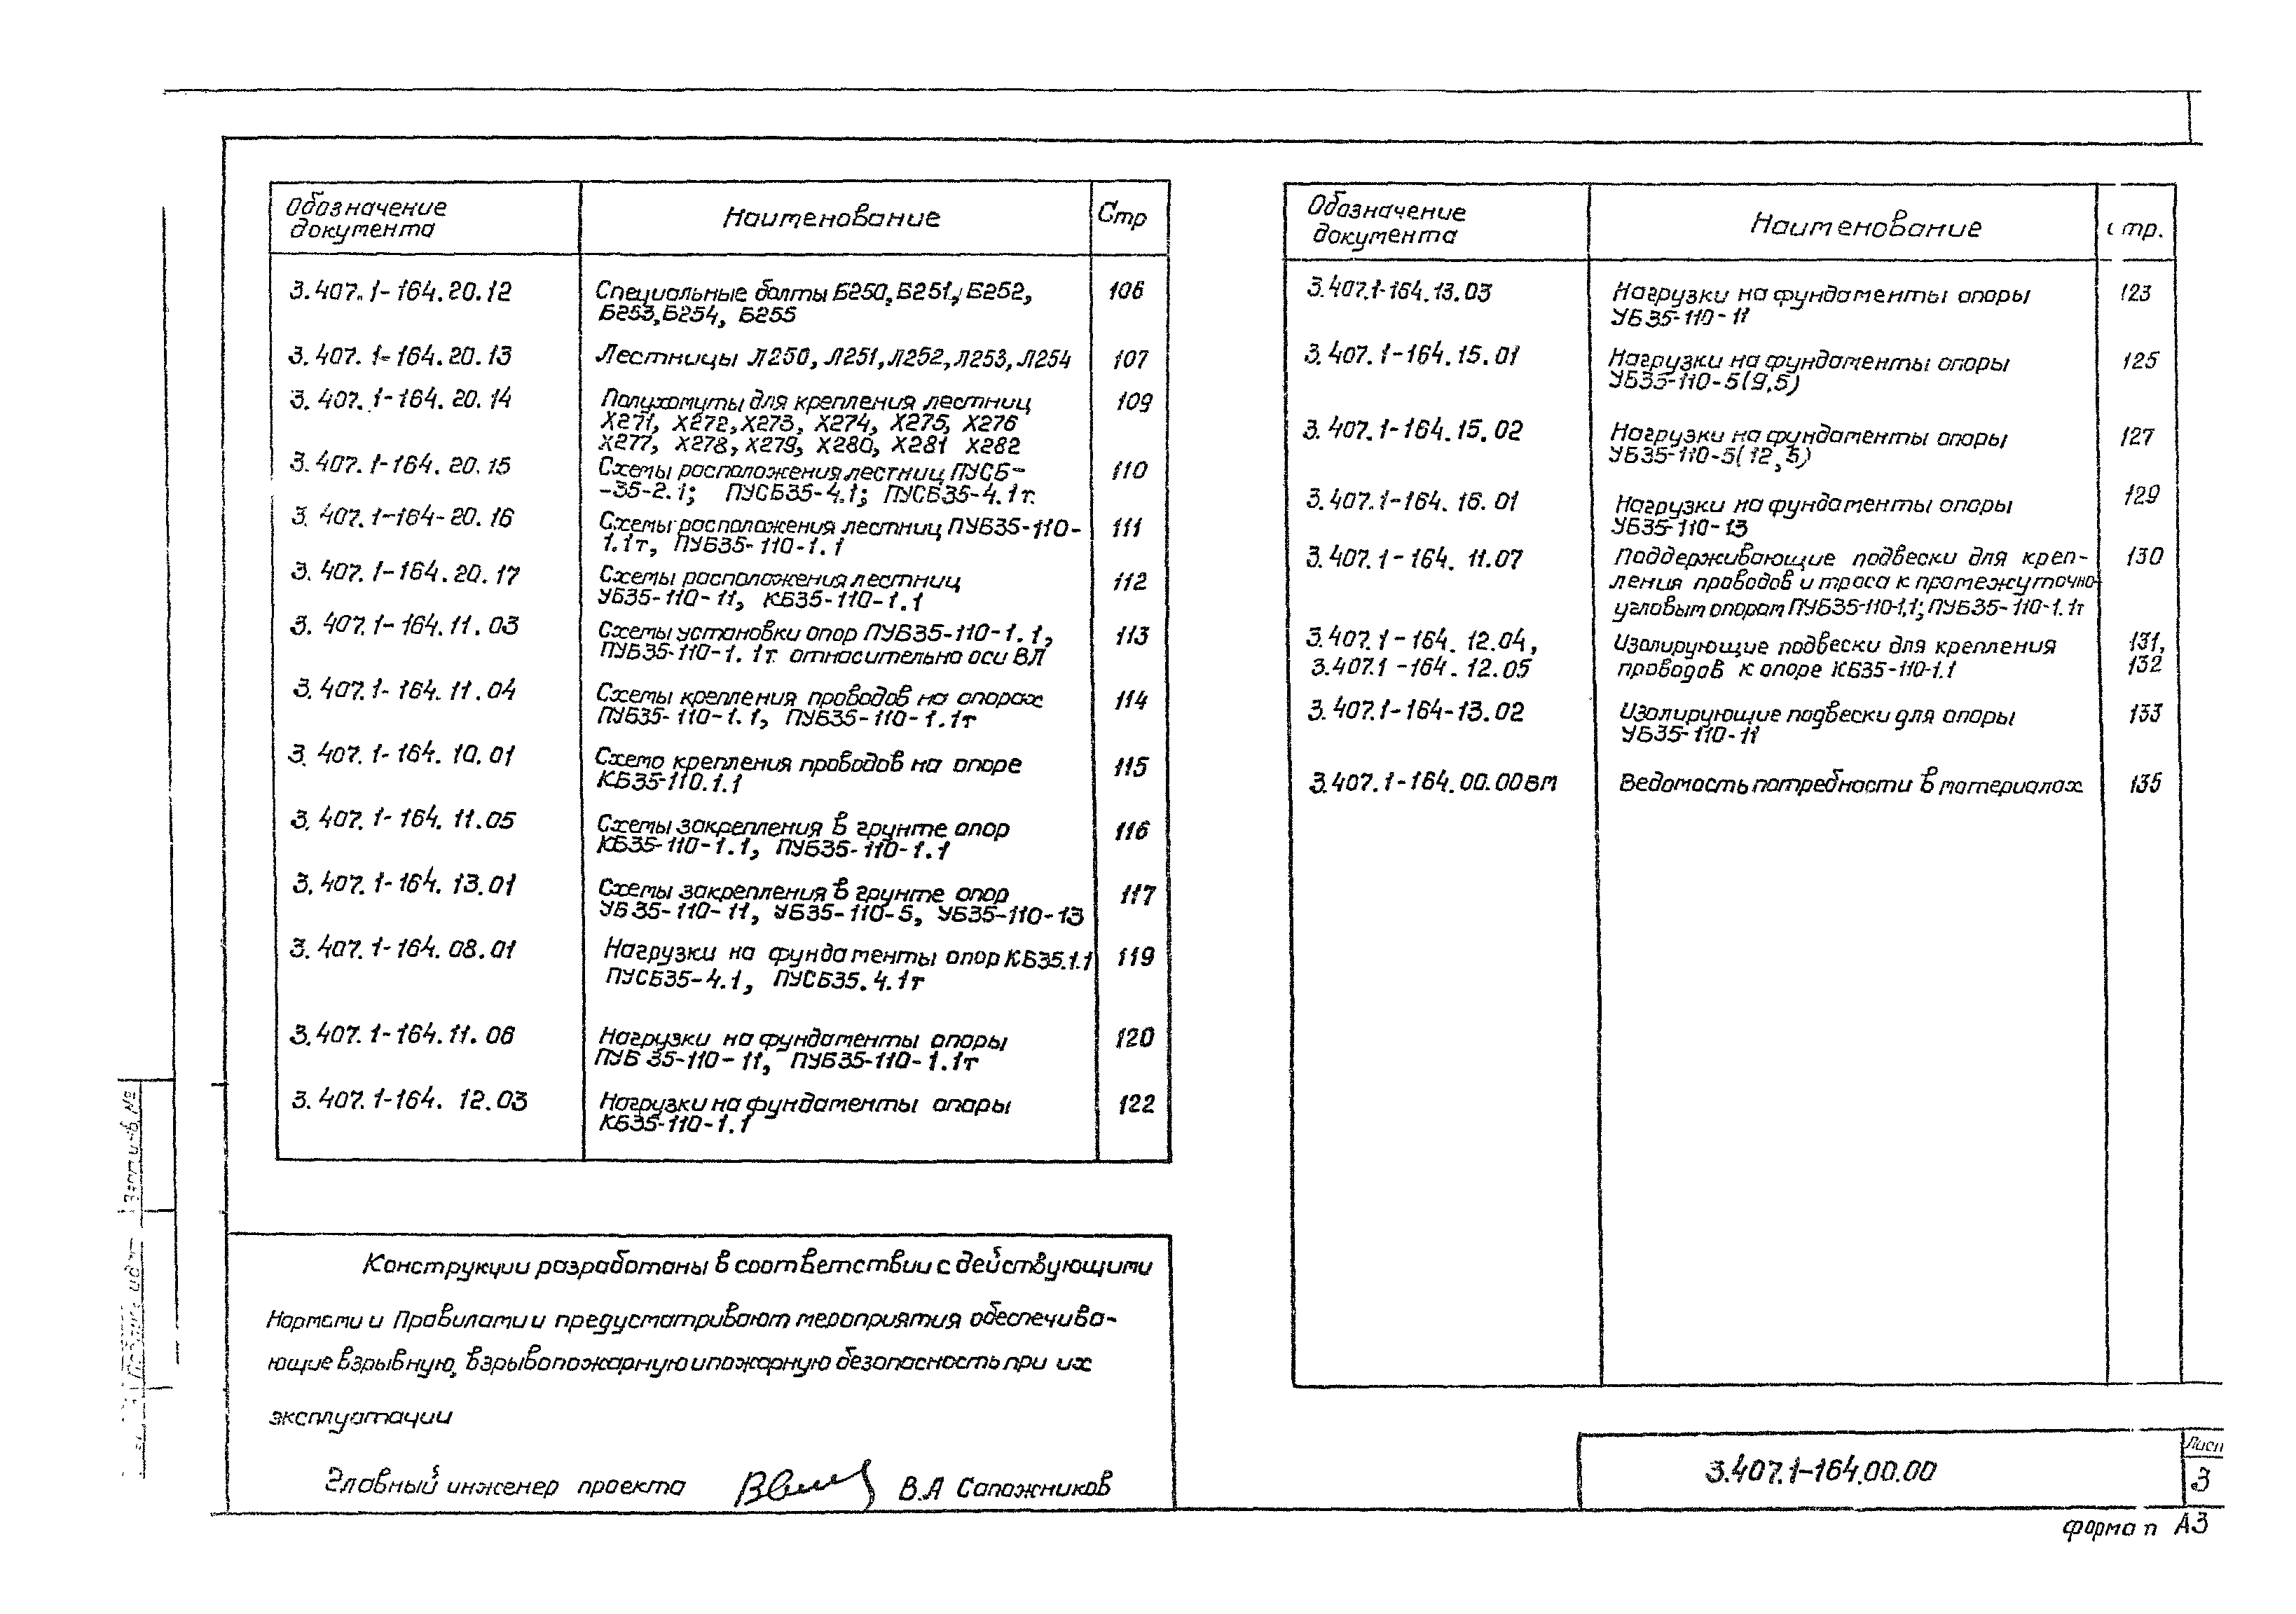 Обозначение документа Наименование Стр
3.407.1-164.20.12 Специальные болты Б250, Б251, Б252, 106
Б253, Б254, Б255
3.407.1-164.20.13 Лестницы Л250, Л251, Л252, Л253, Л254 107
3.407.1-164.20.14 Полухомуты для крепления лестниц 109
Х271, Х272, Х273, Х274, Х275, Х276
Х277, Х278, Х279, Х280, Х281 Х282
3.407.1-164.20.15 Схемы расположения лестниц ПУСБ- 110
-35-2.1; ПУСБ35-4.1; ПУСБ35-4.1т.
3.407.1-164-20.16 Схемы расположения лестниц ПУБ35-110- 111
1.1т, ПУБ35-110-1.1
3.407.1-164.20.17 Схемы расположения лестниц 112
УБ35-110-11, КБ35-110-1.1
3.407.1-164.11.03 Схемы установки опор ПУБ35-110-1.1, 113
ПУБ35-110-1.1т относительно оси ВЛ
3.407.1-164.11.04 Схемы крепления проводов на опорах 114
ПУБ35-110-1.1, ПУБ35-110-1.1т
3.407.1-164.10.01 Схема крепления проводов на опоре 115
КБ35-110.1.1
3.407.1-164.11.05 Схемы закрепления в грунте опор 116
КБ35-110-1.1, ПУБ35-110-1.1
3.407.1-164.13.01 Схемы закрепления в грунте опор 117
УБ35-110-11, УБ35-110-5, УБ35-110-13
3.407.1-164.08.01 Нагрузки на фундаменты опор КБ35.1.1 119
ПУСБ35-4.1, ПУСБ35.4.1т
3.407.1-164.11.06 Нагрузки на фундаменты опоры 120
ПУБ 35-110-11, ПУБ35-110-1.1т
3.407.1-164.12.03 Нагрузки на фундаменты опоры 122
КБ35-110-1.1
Обозначение документа Наименование стр.
3.407.1-164.13.03 Нагрузки на фундаменты опоры 123
УБ35-110-11
3.407.1-164.15.01 Нагрузки на фундаменты опоры 125
УБ35-110-5(9,5)
3.407.1-164.15.02 Нагрузки на фундаменты опоры 127
УБ35-110-5(12,5)
3.407.1-164.16.01 Нагрузки на фундаменты опоры 129
УБ35-110-13
3.407.1-164.11.07 Поддерживающие подвески для креп- 130
ления проводов и троса к промежуточно-
угловым опорам ПУБ35-110-1,1; ПУБ35-110-1.1т
3.407.1-164.12.04, Изолирующие подвески для крепления 131,
3.407.1-164.12.05 проводов к опоре КБ35-110-1.1 132
3.407.1-164-13.02 Изолирующие подвески для опоры 133
УБ35-110-11
3.407.1-164.00.00ВМ Ведомость потребности в материалах 135
Конструкции разработаны в соответствии с действующими
Нормами и Правилами и предусматривают мероприятия обеспечива-
ющие взрывную, взрывопожарную и пожарную безопасность при их
эксплуатации
Главный инженер проекта В.А Сапожников
3.407.1-164.00.00
Лист
3
формат А3
Взам инв №